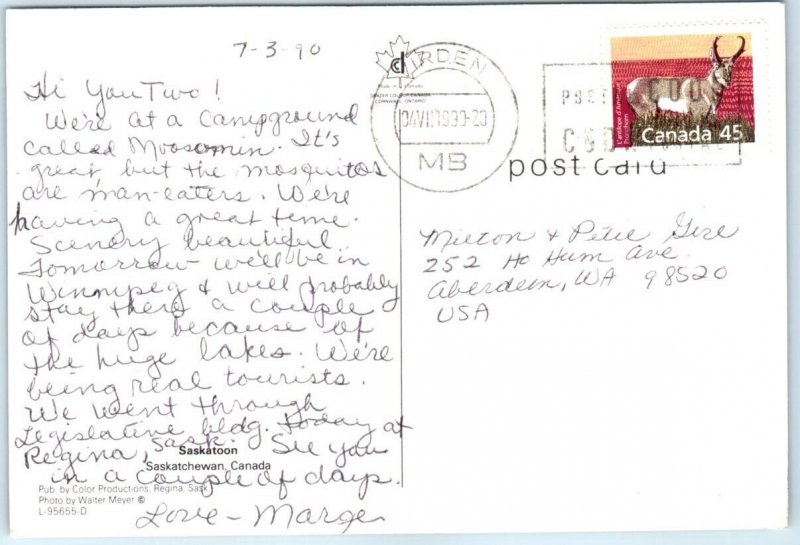 7-3-90
Hi You Two!
We're at a Campground
called Moosomin. It's
great, but the mosquitos
are man-eaters. We're
having a great time.
Scenery beautiful.
Tomorrow we'll be in
Winnipeg & will probably
stay there a couple
of days because of
the huge lakes. We're
being real tourists.
We went through
Legislative bldg. today at
Regina, Sask. See you
in a couple of days.
Love - Marge
Saskatoon
Saskatchewan, Canada
Pub. by Color Productions, Regina, Sask
Photo by Walter Meyer ©
L-95655-D
dc
Made in Canada
CORNWALL, ONTARIO
VIRDEN
MB
L'antilope d'Amérique
Pronghorn
Canada 45
post card
Milton & Pete
252 Ho Hum Ave.
Aberdeen, WA 98520
USA